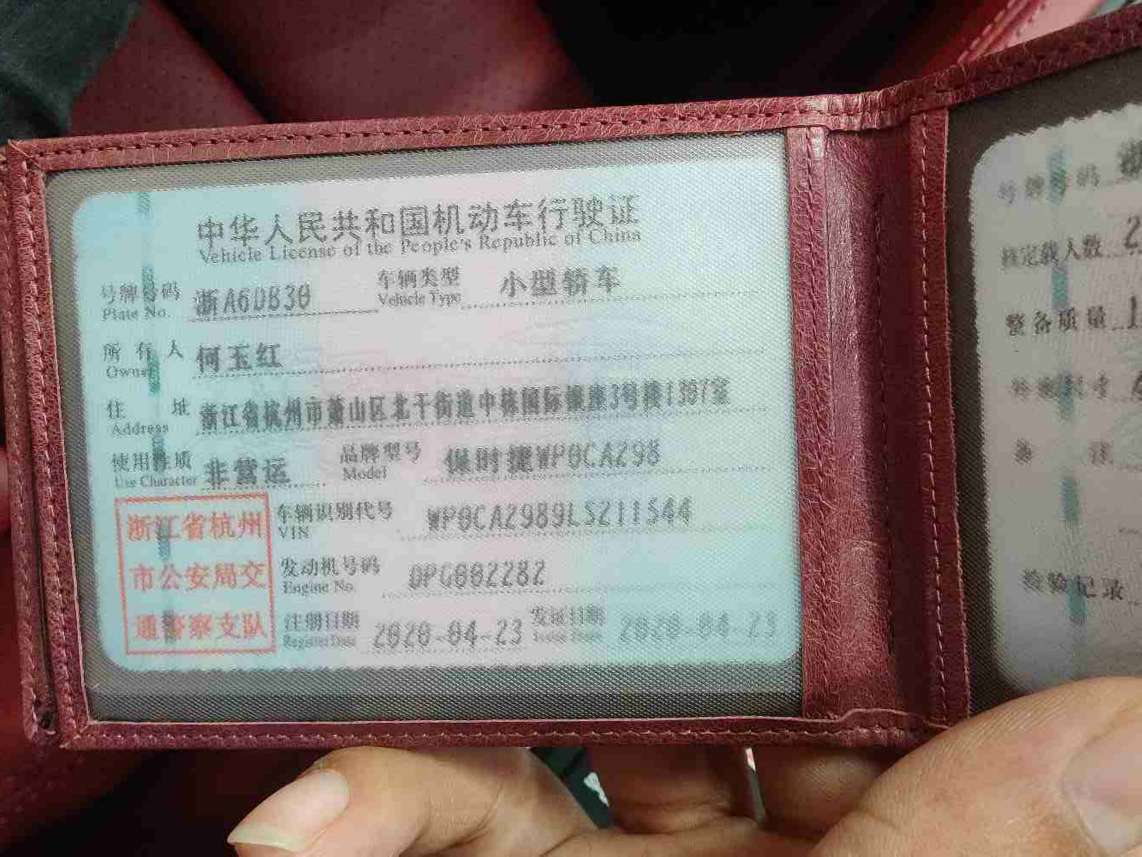 中华人民共和国机动车行驶证
Vehicle License of the People's Republic of China
号牌号码 浙A6DB30 车辆类型 小型轿车
Plate No. Vehicle Type
所有人 何玉红
Owner
住址 浙江省杭州市萧山区北干街道中栋国际银座3号楼1307室
Address
使用性质 非营运 品牌型号 保时捷WP0CA298
Use Character Model
浙江省杭州
市公安局交
通警察支队
车辆识别代号 WP0CA2989LS211544
VIN
发动机号码 DPG002282
Engine No.
注册日期 2020-04-23 发证日期 2020-04-23
Register Date Issue Date
号牌号码 浙
核定载人数 2
整备质量 1
外廓尺寸
备注
检验记录